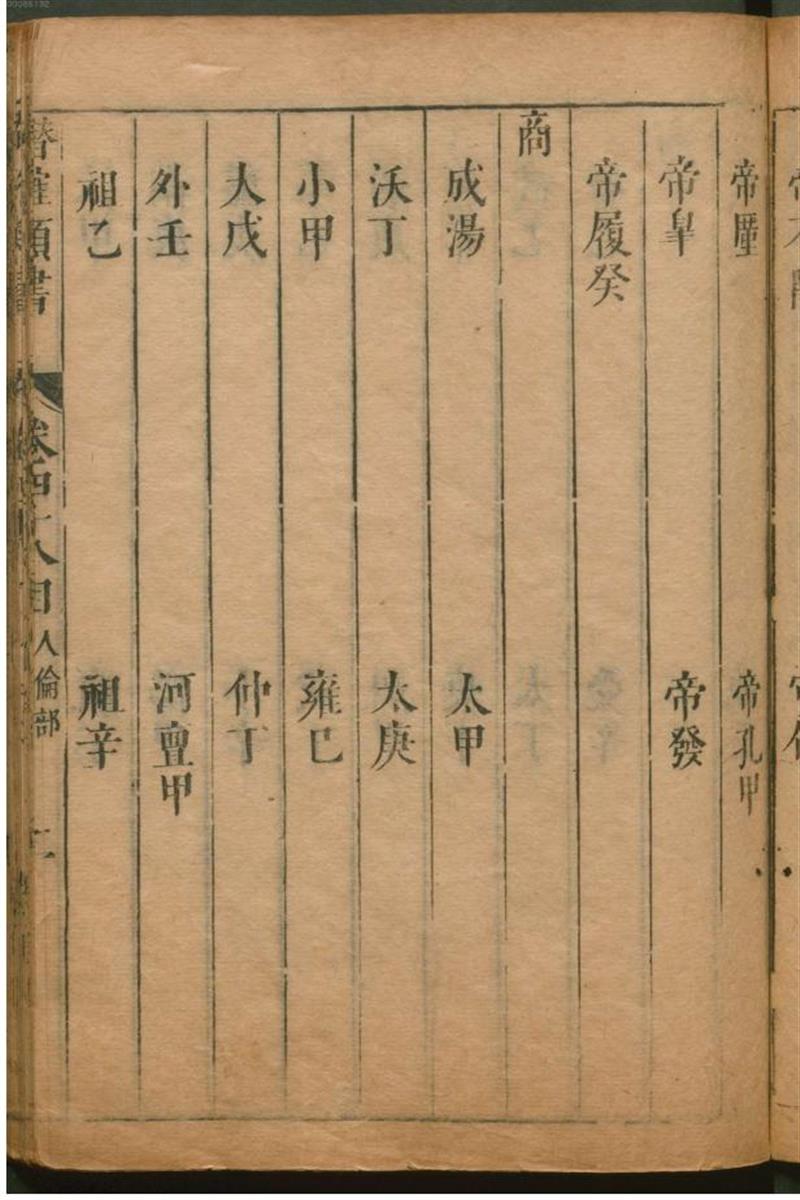 帝廑　帝孔甲
帝皐　帝發
帝履癸
商
成湯　太甲
沃丁　太庚
小甲　雍巳
大戊　仲丁
外壬　河亶甲
祖乙　祖辛
類書　人倫部　二